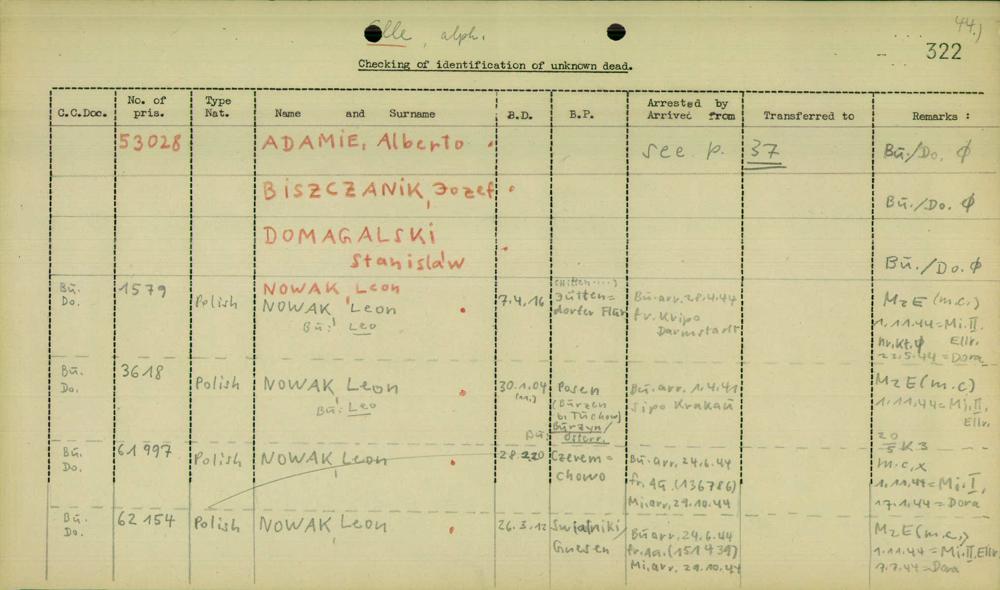 44.)
Elle, alph.
322
Checking of identification of unknown dead.
C.C.Doc. No. of pris. Type Nat. Name and Surname B.D. B.P. Arrested by Arrived from Transferred to Remarks :
53028 ADAMIE, Alberto see p. 37 Bu./Do. ϕ
BISZCZANIK, Jozef Bu./Do. ϕ
DOMAGALSKI
Stanisław Bu./Do. ϕ
NOWAK, Leon
Bu. 1579 Jütten= Bu. arr. 28.4.44 MzE (m.c.)
Do. Polish NOWAK, Leon 7.4.16 dorfer Flur fr. Kripo 1.11.44=Mi.II.
Bu: Leo Darmstadt Ellr.
22.5.44=Dora
Bu. 3618
Do. Polish NOWAK, Leon 30.1.04 Posen Bu. arr. 1.4.41 MzE (m.c)
Bu: Leo (11.) (Burzen Sipo Krakau 1.11.44=Mi.II.
b. Tuchow) Ellr.
Bu: Burzyn/
Österr.
Bu. 61997 28.2.20 Czerem= Bu. arr. 24.6.44 m.c,x
Do. Polish NOWAK, Leon chowo fr. Au. (136786) 1.11.44=Mi.I,
Mi.arr. 29.10.44 17.1.44=Dora
Bu. 62154 Polish NOWAK, Leon 26.3.12 Swiatniki/ Bu arr. 24.6.44 MzE (m.c.)
Do. Gnesen fr. Au. (151439) 1.11.44=Mi.II, Ellr.
Mi, arr. 29.10.44 7.7.44=Dora